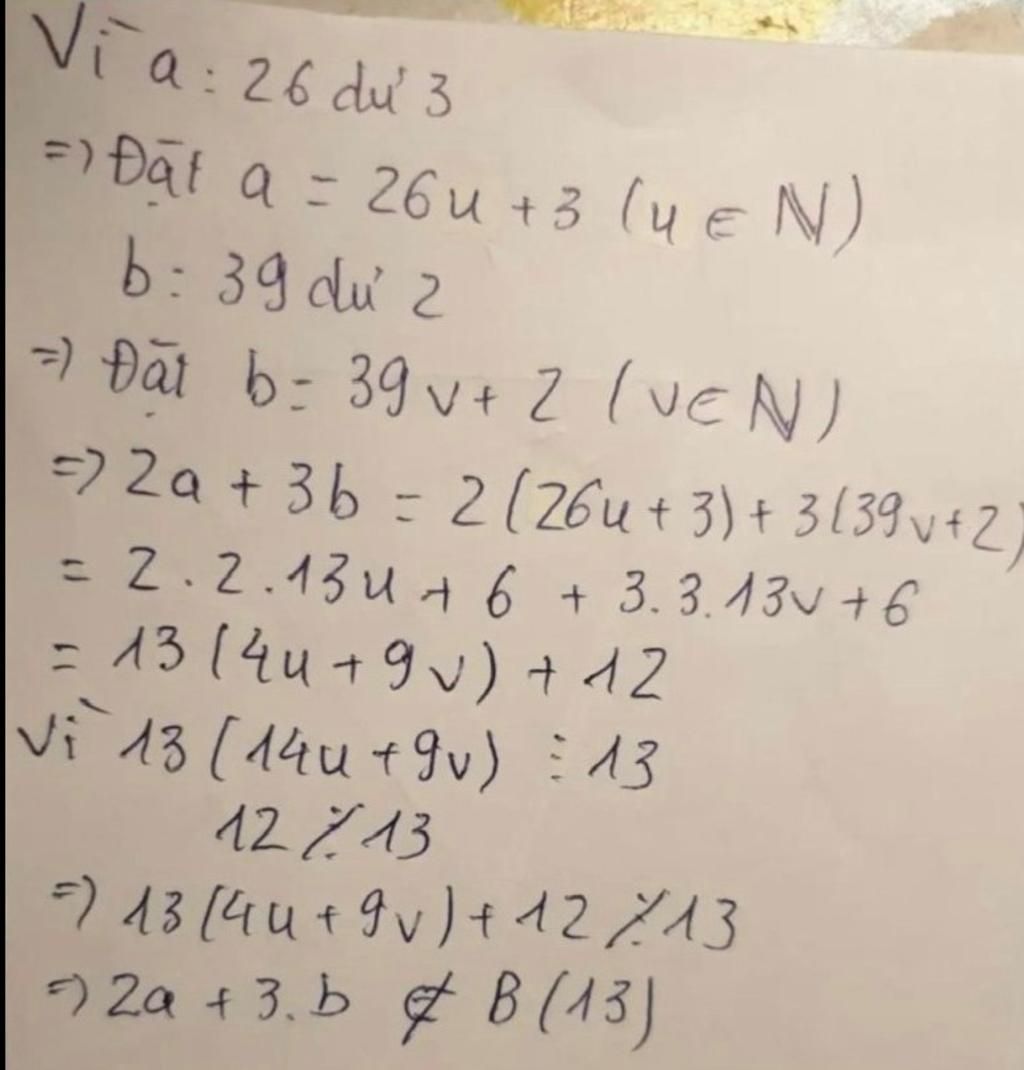 Vì a : 26 dư 3
=> Đặt a = 26u + 3 (u ∈ ℕ)
b : 39 dư 2
=> Đặt b = 39v + 2 (v ∈ ℕ)
=> 2a + 3b = 2(26u + 3) + 3(39v + 2)
= 2 . 2 . 13u + 6 + 3 . 3 . 13v + 6
= 13 (4u + 9v) + 12
Vì 13 (14u + 9v) ⋮ 13
12 ⋮̸ 13
=> 13(4u + 9v) + 12 ⋮̸ 13
=> 2a + 3.b ∉ B(13)